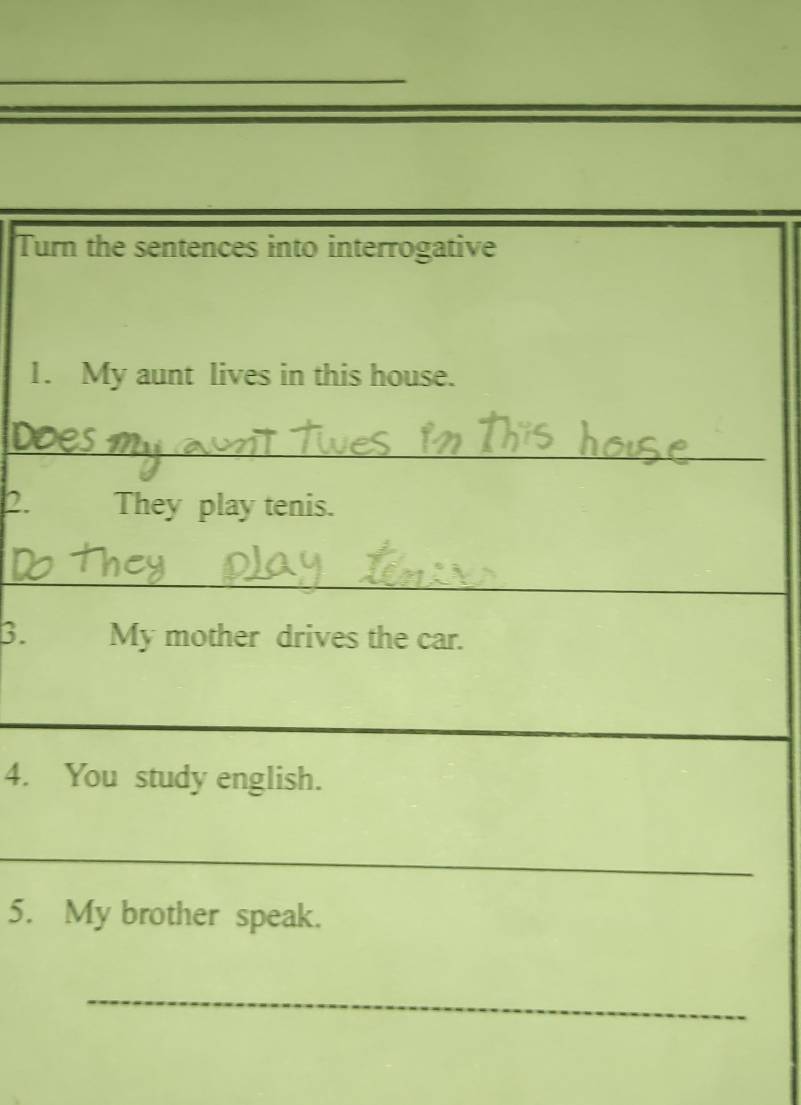 Turn the sentences into interrogative
1. My aunt lives in this house.
Does my aunt in This house
2. They play tenis.
Do They play
3. My mother drives the car.
4. You study english.
5. My brother speak.